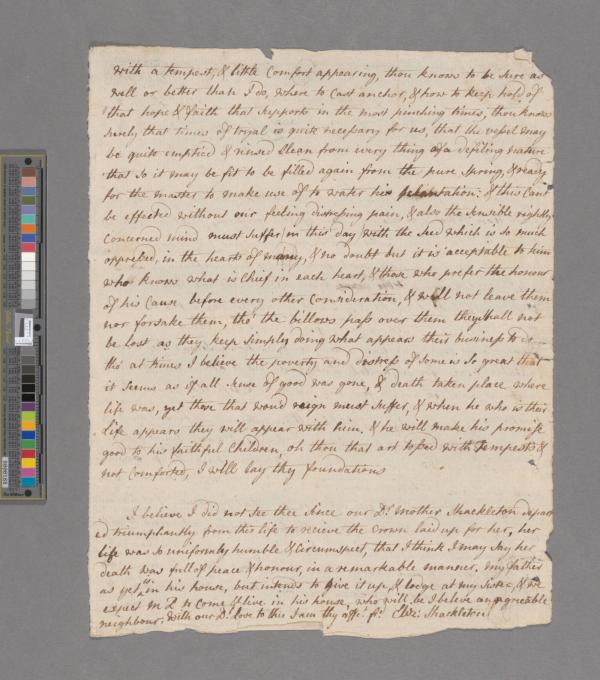 with a tempest, & little Comfort appearing, thou knows to be sure as
well or better than I do, where to Cast anchor, & how to keep hold of
that hope & faith that Supports in the most pinching times, thou knows
surely that times of tryal is quite necessary for us, that the vessel may
be quite emptied & rinsed Clean from every thing of a defiling nature
that so it may be fit to be filled again from the pure Spring, & ready
for the master to make use of to water his plantation: & this Cant
be effected without our feeling distressing pain, & also the Sensible rightly
Concerned mind must Suffer in this day with the Seed which is so much
oppressed, in the hearts of many, & no doubt but it is acceptable to him
who knows what is Chief in each heart, & those who prefer the honour
of his Cause before every other Consideration, & will not leave them
nor forsake them, tho' the billows pass over them they shall not
be lost as they keep Simply doing what appears their business to
tho' at times I believe the poverty and distress of Some is So great that
it Seems as if all Sense of good was gone, & death taken place where
life was, yet those that woud reign must Suffer, & when he who is their
life appears they will appear with him, & he will make his promise
good to his faithful Children, oh thou that art tossed with Tempests &
not Comforted, I will lay thy foundations
I believe I did not See thee Since our Dr. Mother Shackleton depart
ed triumphantly from this life to recieve the Crown laid up for her, her
life was So uniformly humble & Circumspect, that I think I may Say her
death was full of peace & honour, in a remarkable manner, my father
as yet in his house, but intends to give it up, & lodge at my Sisters, & we
expect to Come & live in his house, who will be I believe an agreeable
neighbour: with our Dr. love to thee I am thy Shackleton